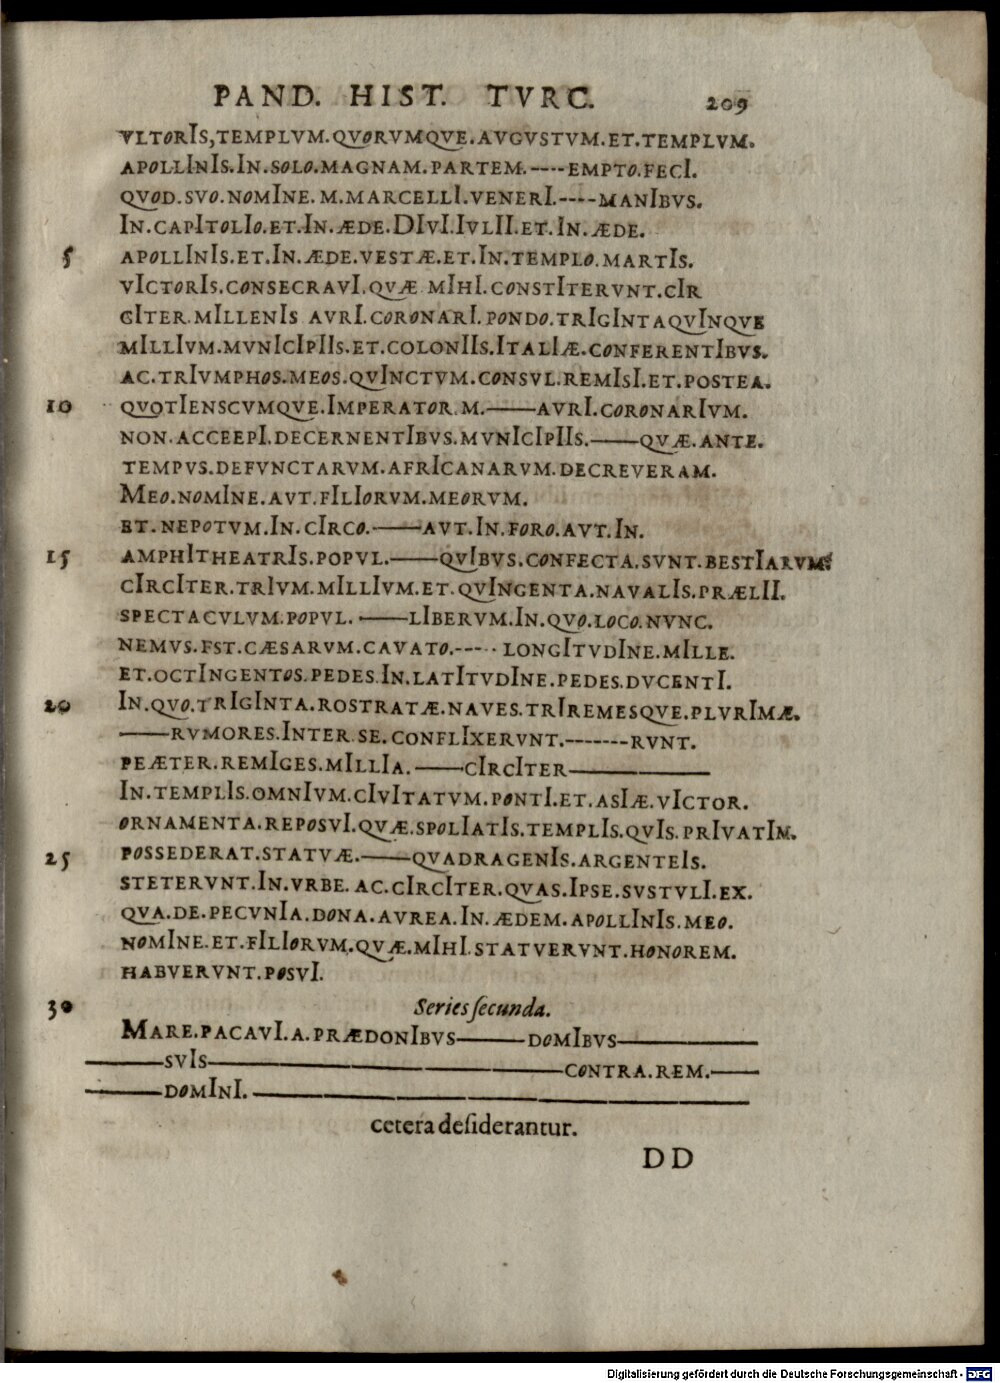 PAND. HIST. TVRC. 209
VLTORIS, TEMPLVM. QVORVMQVE. AVGVSTVM. ET. TEMPLVM.
APOLLINIS. IN. SOLO. MAGNAM. PARTEM. ---- EMPTO. FECI.
QVOD. SVO. NOMINE. M. MARCELLI. VENERI. ---- MANIBVS.
IN. CAPITOLIO. ET. IN. ÆDE. DIVI. IVLII. ET. IN. ÆDE.
5 APOLLINIS. ET. IN. ÆDE. VESTÆ. ET. IN. TEMPLO. MARTIS.
VICTORIS. CONSECRAVI. QVÆ MIHI. CONSTITERVNT. CIR
CITER. MILLENIS AVRI. CORONARI. PONDO. TRIGINTAQVINQVE
MILLIVM. MVNICIPIIS. ET. COLONIIS. ITALIÆ. CONFERENTIBVS.
AC. TRIVMPHOS. MEOS. QVINCTVM. CONSVL. REMISI. ET. POSTEA.
10 QVOTIENSCVMQVE. IMPERATOR. M. —— AVRI. CORONARIVM.
NON. ACCEEPI. DECERNENTIBVS. MVNICIPIIS. —— QVÆ. ANTE.
TEMPVS. DEFVNCTARVM. AFRICANARVM. DECREVERAM.
MEO. NOMINE. AVT. FILIORVM. MEORVM.
ET. NEPOTVM. IN. CIRCO. —— AVT. IN. FORO. AVT. IN.
15 AMPHITHEATRIS. POPVL. —— QVIBVS. CONFECTA. SVNT. BESTIARVM.
CIRCITER. TRIVM. MILLIVM. ET. QVINGENTA. NAVALIS. PRÆLII.
SPECTACVLVM. POPVL. —— LIBERVM. IN. QVO. LOCO. NVNC.
NEMVS. FST. CÆSARVM. CAVATO. ----- LONGITVDINE. MILLE.
ET. OCTINGENTOS. PEDES. IN. LATITVDINE. PEDES. DVCENTI.
20 IN. QVO. TRIGINTA. ROSTRATÆ. NAVES. TRIREMESQVE. PLVRIMÆ.
—— RVMORES. INTER. SE. CONFLIXERVNT. ------- RVNT.
PEÆTER. REMIGES. MILLIA. —— CIRCITER ——————
IN. TEMPLIS. OMNIVM. CIVITATVM. PONTI. ET. ASIÆ. VICTOR.
ORNAMENTA. REPOSVI. QVÆ. SPOLIATIS. TEMPLIS. QVIS. PRIVATIM.
25 POSSEDERAT. STATVÆ. —— QVADRAGENIS. ARGENTEIS.
STETERVNT. IN. VRBE. AC. CIRCITER. QVAS. IPSE. SVSTVLI. EX.
QVA. DE. PECVNIA. DONA. AVREA. IN. ÆDEM. APOLLINIS. MEO.
NOMINE. ET. FILIORVM. QVÆ. MIHI. STATVERVNT. HONOREM.
HABVERVNT. POSVI.
30 Series secunda.
MARE. PACAVI. A. PRÆDONIBVS ——— DOMIBVS ——————
——— SVIS ————————————————— CONTRA. REM. ——
——— DOMINI. ————————————————————————
cetera desiderantur.
DD
Digitalisierung gefördert durch die Deutsche Forschungsgemeinschaft - DFG